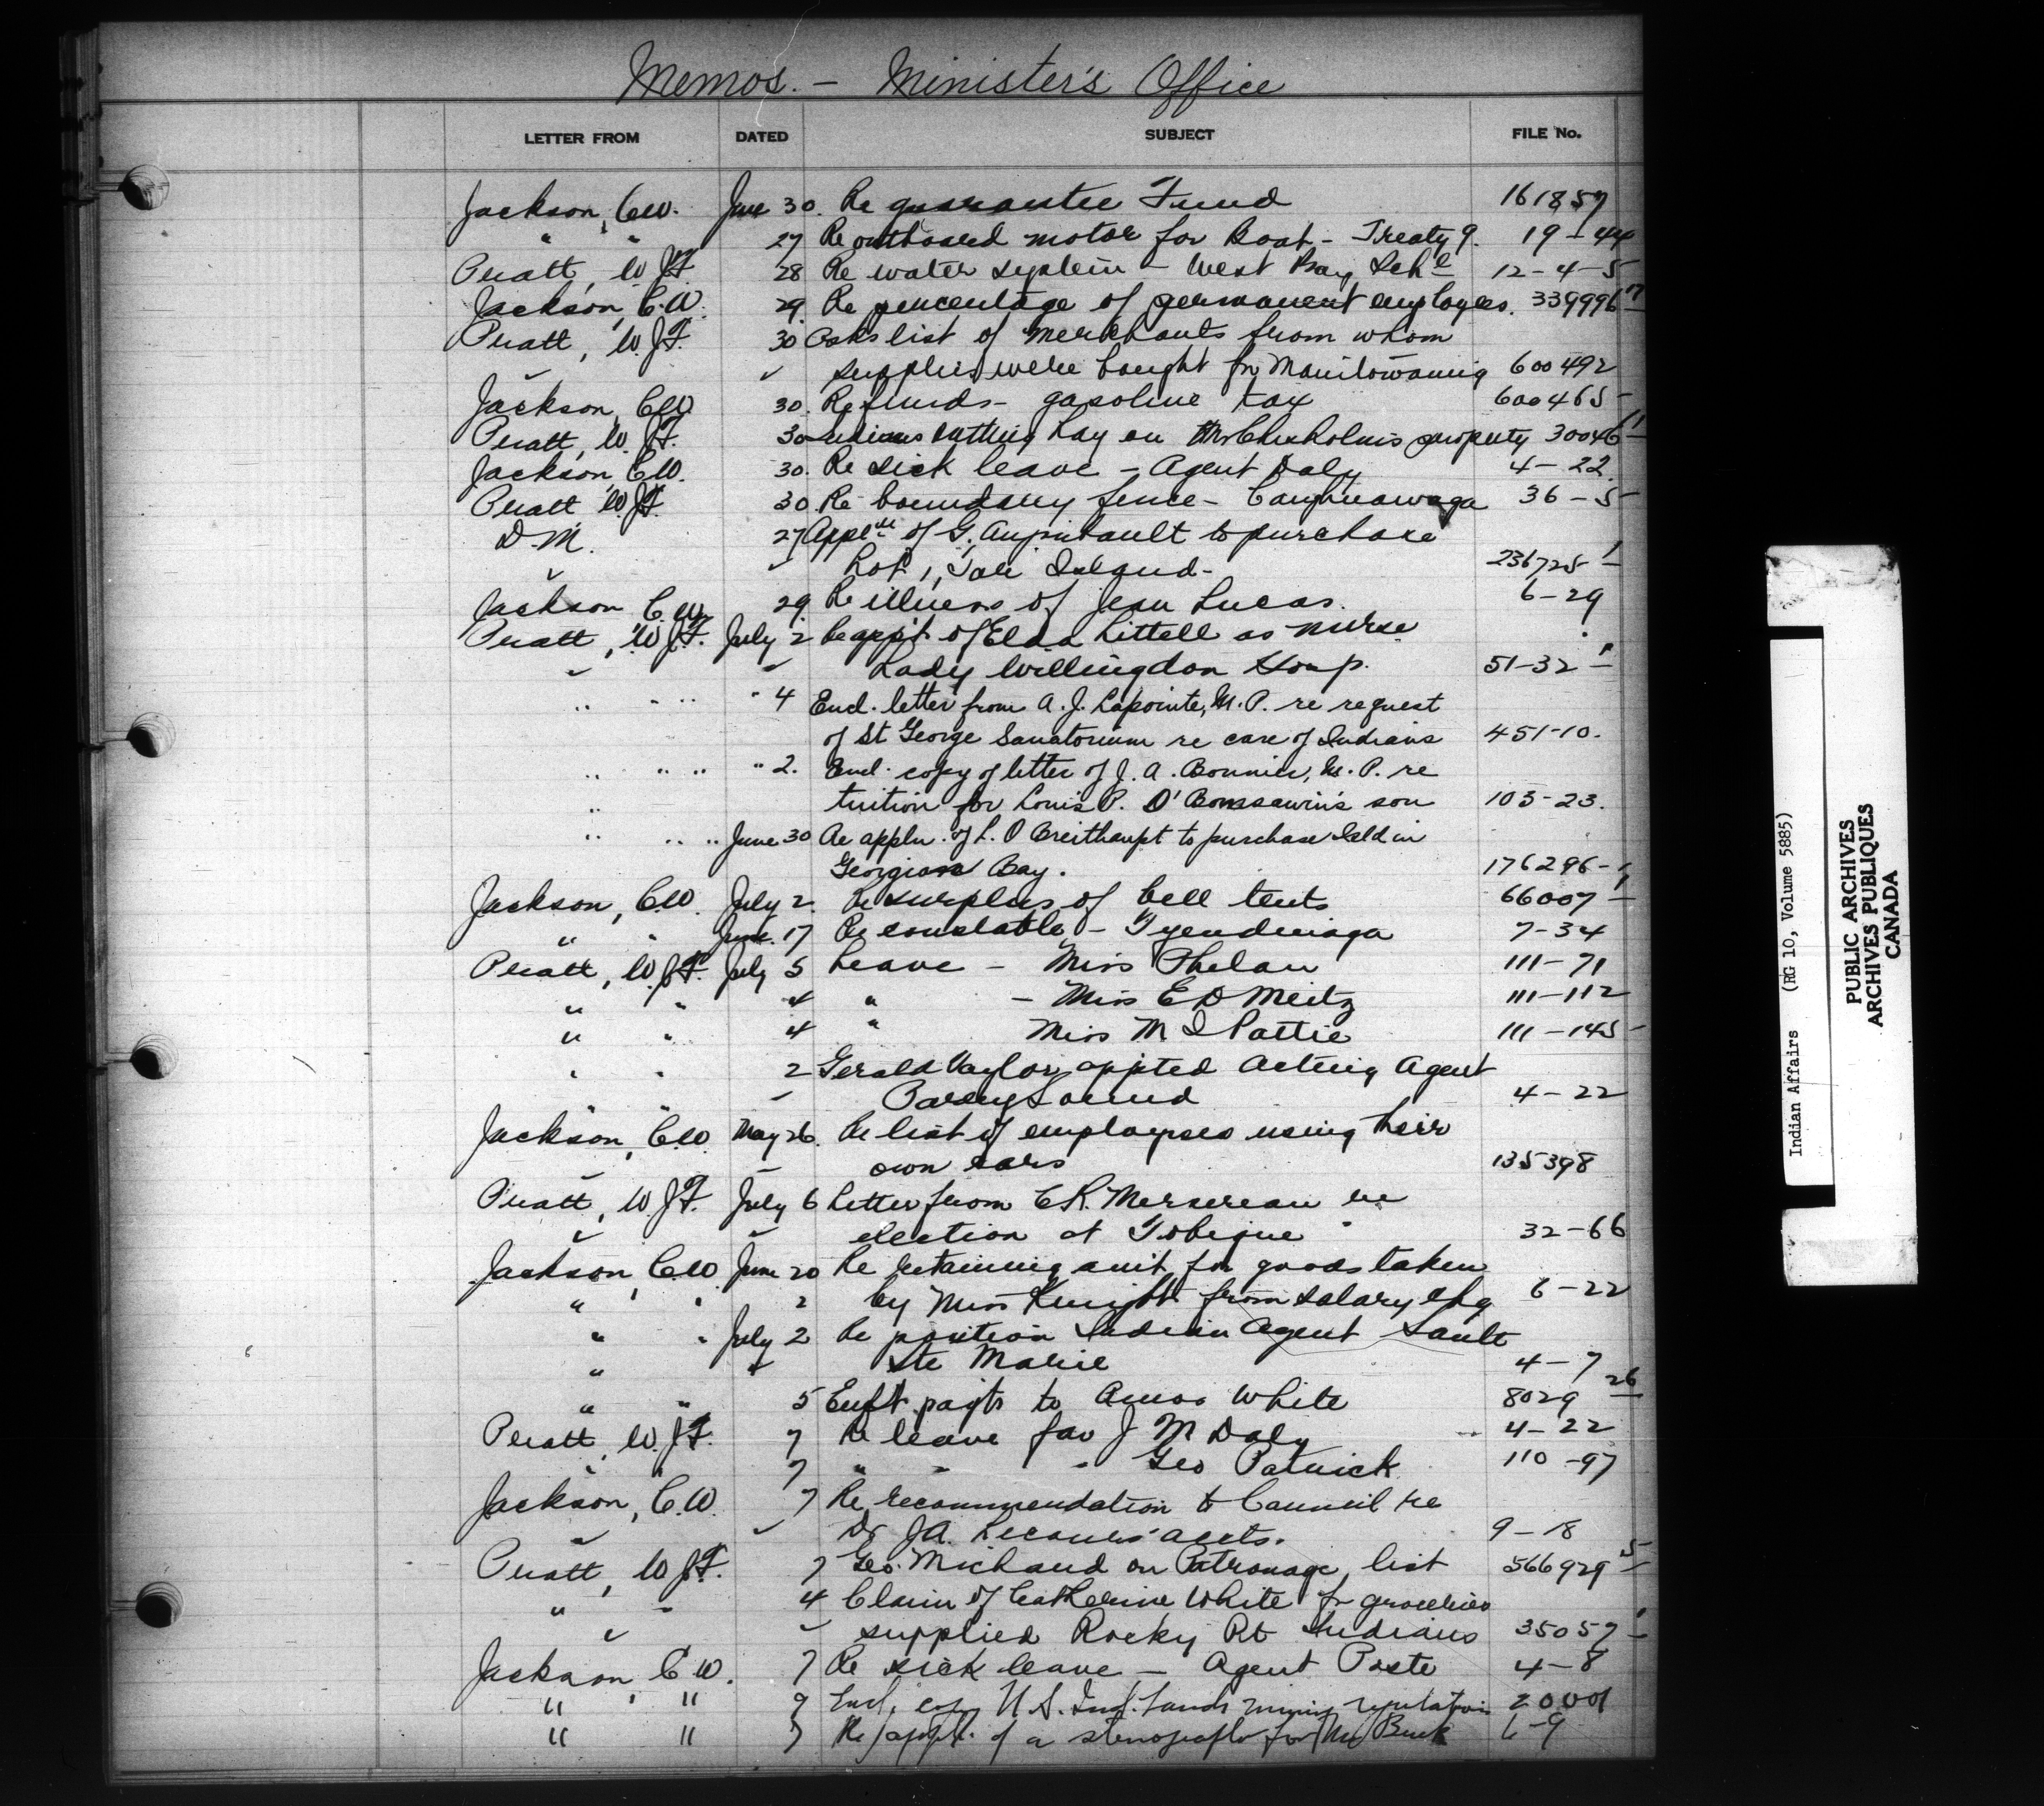 Memos. - Minister's Office
LETTER FROM DATED SUBJECT FILE No.
Jackson, C.W. June 30. Re guarantee Fund 161857
" " 27 Re outboard motor for Boat - Treaty 9. 19-44
Pratt, W.J.F. 28 Re water system - West Bay Schl 12-4-5
Jackson, C.W. 29. Re percentage of permanent employees. 339996-7
Pratt, W.J.F. 30 Asks list of Merchants from whom
supplies were bought for Manitowaning 600492
Jackson, C.W. 30. Refunds - gasoline tax 600465-
Pratt, W.J.F. 30 Indians cutting hay on Mr Chisholm's property 30046-1
Jackson, C.W. 30. Re sick leave - Agent Daly 4-22.
Pratt W.J.F. 30. Re boundary fence - Caughnawaga 36-5
D.M. 27 Appln of G. to purchase
Lot 1, Island - 236725-1
Jackson C.W. 29. Re illness of Jean Lucas. 6-29
Pratt, W.J.F. July 2 Re appt of Elda Littell as nurse
Lady Willingdon Hosp. 51-32-1
" " " " 4 Encl. letter from A.J. Lapointe, M.P. re request
of St George Sanatorium re care of Indians 451-10.
" " " " 2. Encl. copy of letter of J.A. Bonnier, M.P. re
tuition for Louis P. O'Bomsawin's son 103-23.
" " " June 30 Re appln. of L.O Breithaupt to purchase Isld in
Georgian Bay. 176296-1
Jackson, C.W. July 2. Re surplus of bell tents 66007-1
" " June 17 Re constable - Tyendinaga 7-34
Pratt, W.J.F. July 5 Leave - Miss Phelan 111-71
" " 4 " - Miss E D Meitz 111-112
" " 4 " Miss M I Pattie 111-145-
" " 2 Gerald Naylor appted Acting Agent
" " Parry Sound 4-22
Jackson, C.W. May 26. Re list of employees using their
own cars 135398
Pratt, W.J.F. July 6 Letter from C.R. Mersereau re
election at Tobique 32-66
Jackson, C.W. June 20 Re retaining amt for goods taken
" " by Miss Knight from salary chq 6-22
" " July 2 Re position Indian Agent Sault
" " Ste Marie 4-7
" " 5 payts to Amos White 8029-26
Pratt, W.J.F. 7 Re leave for J M Daly 4-22
" " 7 " " " Geo Patrick 110-97
Jackson, C.W. 7 Re recommendation to Council re
Dr J.A. accts. 9-18
Pratt, W.J.F. 7 Geo. Michaud on Patronage list 566929-5
" " 4 Claim of Catherine White for groceries
supplied Rocky Pt Indians 35057-1
Jackson C.W. 7 Re sick leave - Agent 4-8
" " 9 Encl. copy U.S. Ind. Lands mining regulations 20001
" " 7 Re appt. of a stenographr for Mr 6-9
Indian Affairs (RG 10, Volume 5885)
PUBLIC ARCHIVES
ARCHIVES PUBLIQUES
CANADA